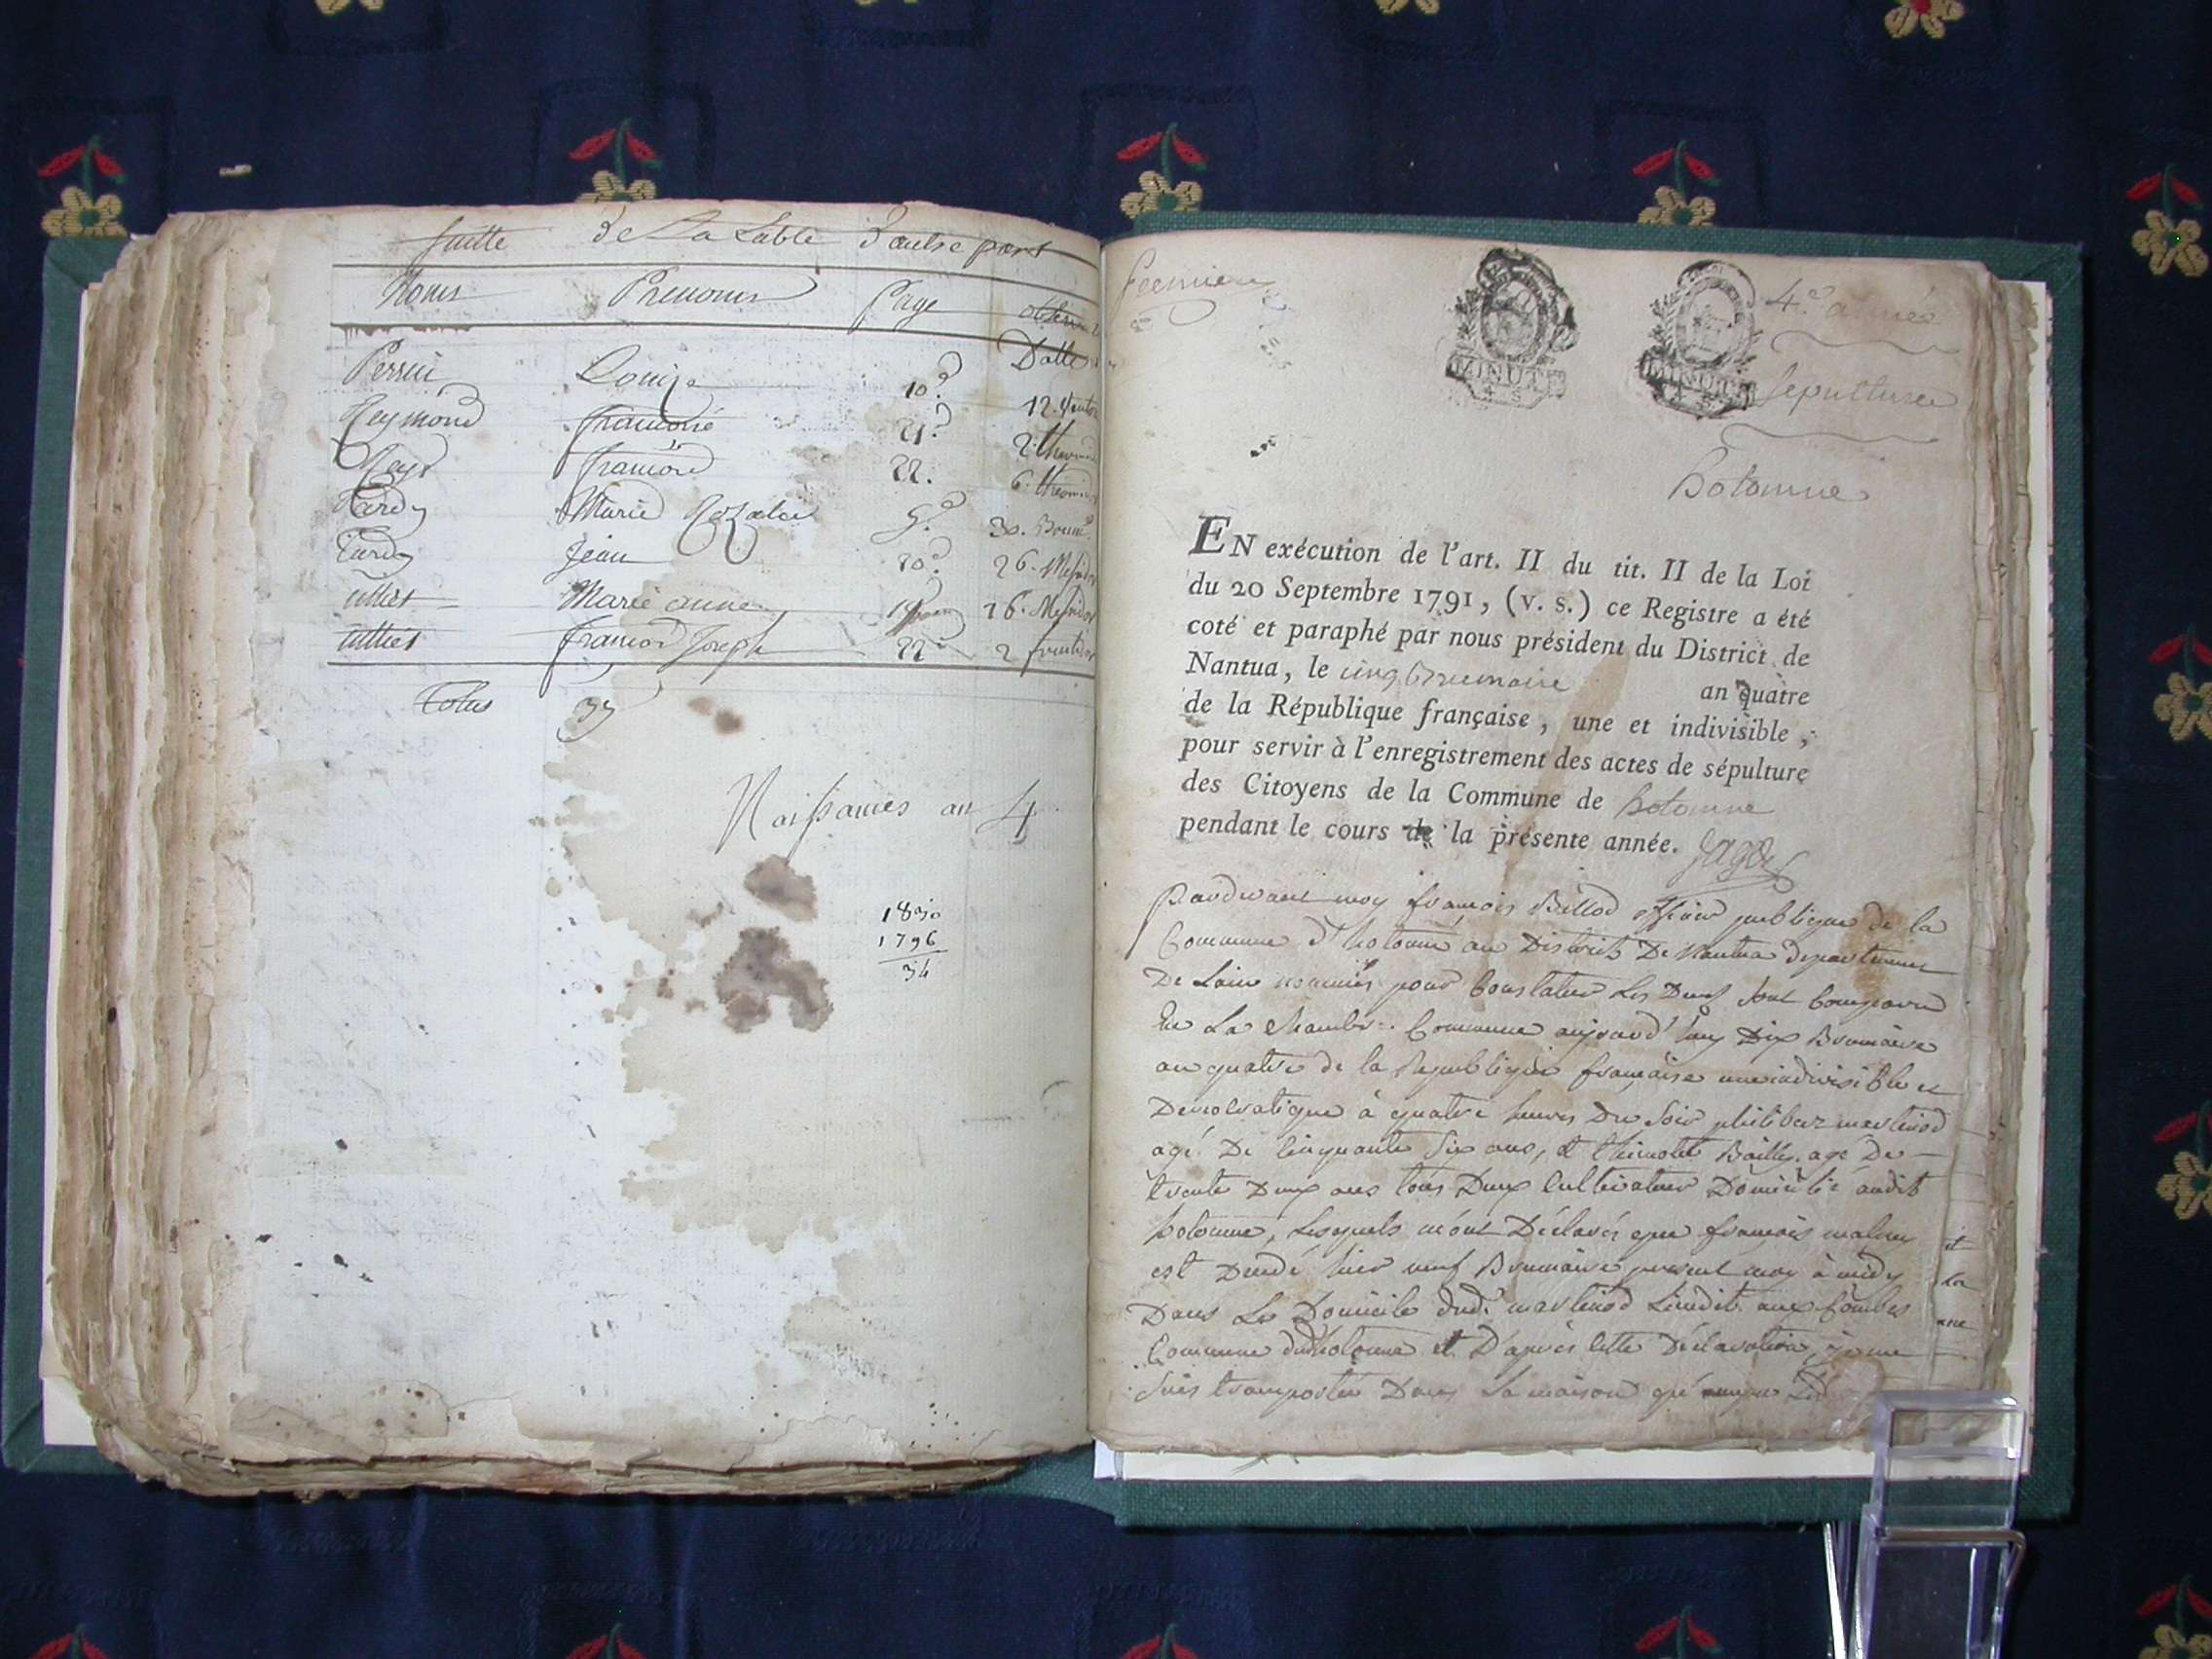 suitte de La table d'autre part
Noms Prenoms Page
Datte
Perrin Louise 10e 12. Vento
Reymond francoise 21e 2. thermi
Rey francois 22. 6. thermi
Tardy Marie Rozalie 5e 30. Brum
Tardy Jean 20e 26. Messidor
Marie anne 16. Messidor
francois Joseph 22 2 fructidor
Totus 37
Naissances an 4
1830
1796
34
Premiere
4e année
MINUTE
MINUTE
Sepultures
hotonne
EN exécution de l'art. II du tit. II de la Loi
du 20 Septembre 1791, (v. s.) ce Registre a été
coté et paraphé par nous président du District de
Nantua, le cinq Brumaire an quatre
de la République française, une et indivisible,
pour servir à l'enregistrement des actes de sépulture
des Citoyens de la Commune de hotonne
pendant le cours de la présente année.
Pardevant moy francois Billod officier publique de la
Commune d'hotonne au District De Nantua departement
De Lain nommés pour Constater Les Deces sont Comparu
En La Chambre Commune aujourd'huy Dix Brumaire
an quatre de la Republique française une indivisible et
Democratique à quatre heures Du Soir philiber martinod
agé De Cinquante Six ans, et thimoté Bailly agé De
trente Deux ans tous Deux Cultivateur Domicilié audit
hotonne, Lesquels m'ont Déclarés que françois
est Decedé hier neuf Brumaire present moy à midy
Dans Le Domicile dud. martinod Lieudit aux Combes
Commune dud hotonne et D'aprés cette Déclaration, je me
suis transporter Dans La maison
et
La
une